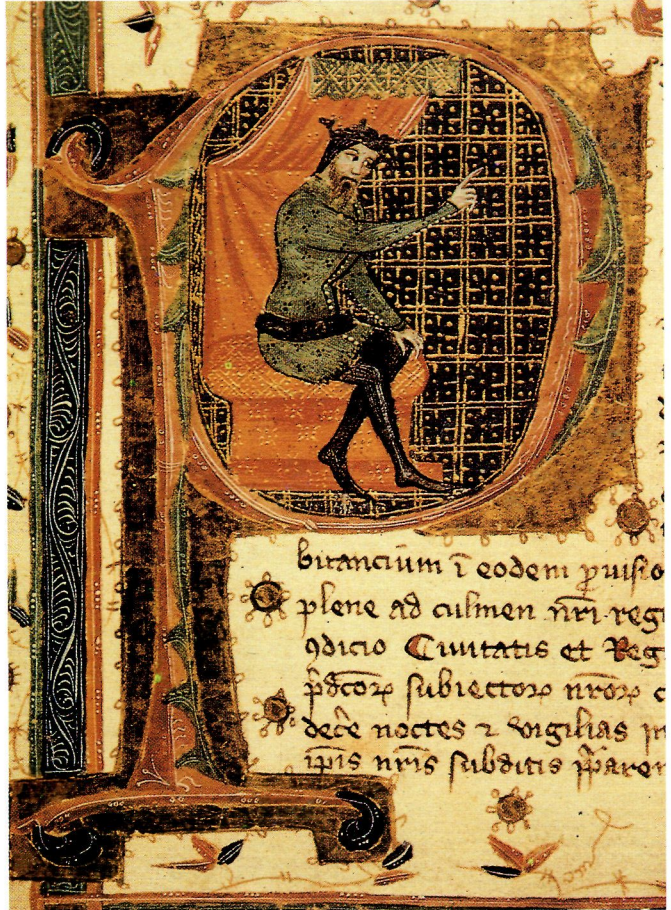 P
bitancium ī eodem ꝓuisio
plene ad culmen nr̄i regi
ꝯdicio Ciuitatis et Reg
p̄dc̄oꝝ subiectoꝝ nr̄oꝝ c
dec̄e noctes ⁊ vigilias in
ip̄is nr̄is subditis p̄paren